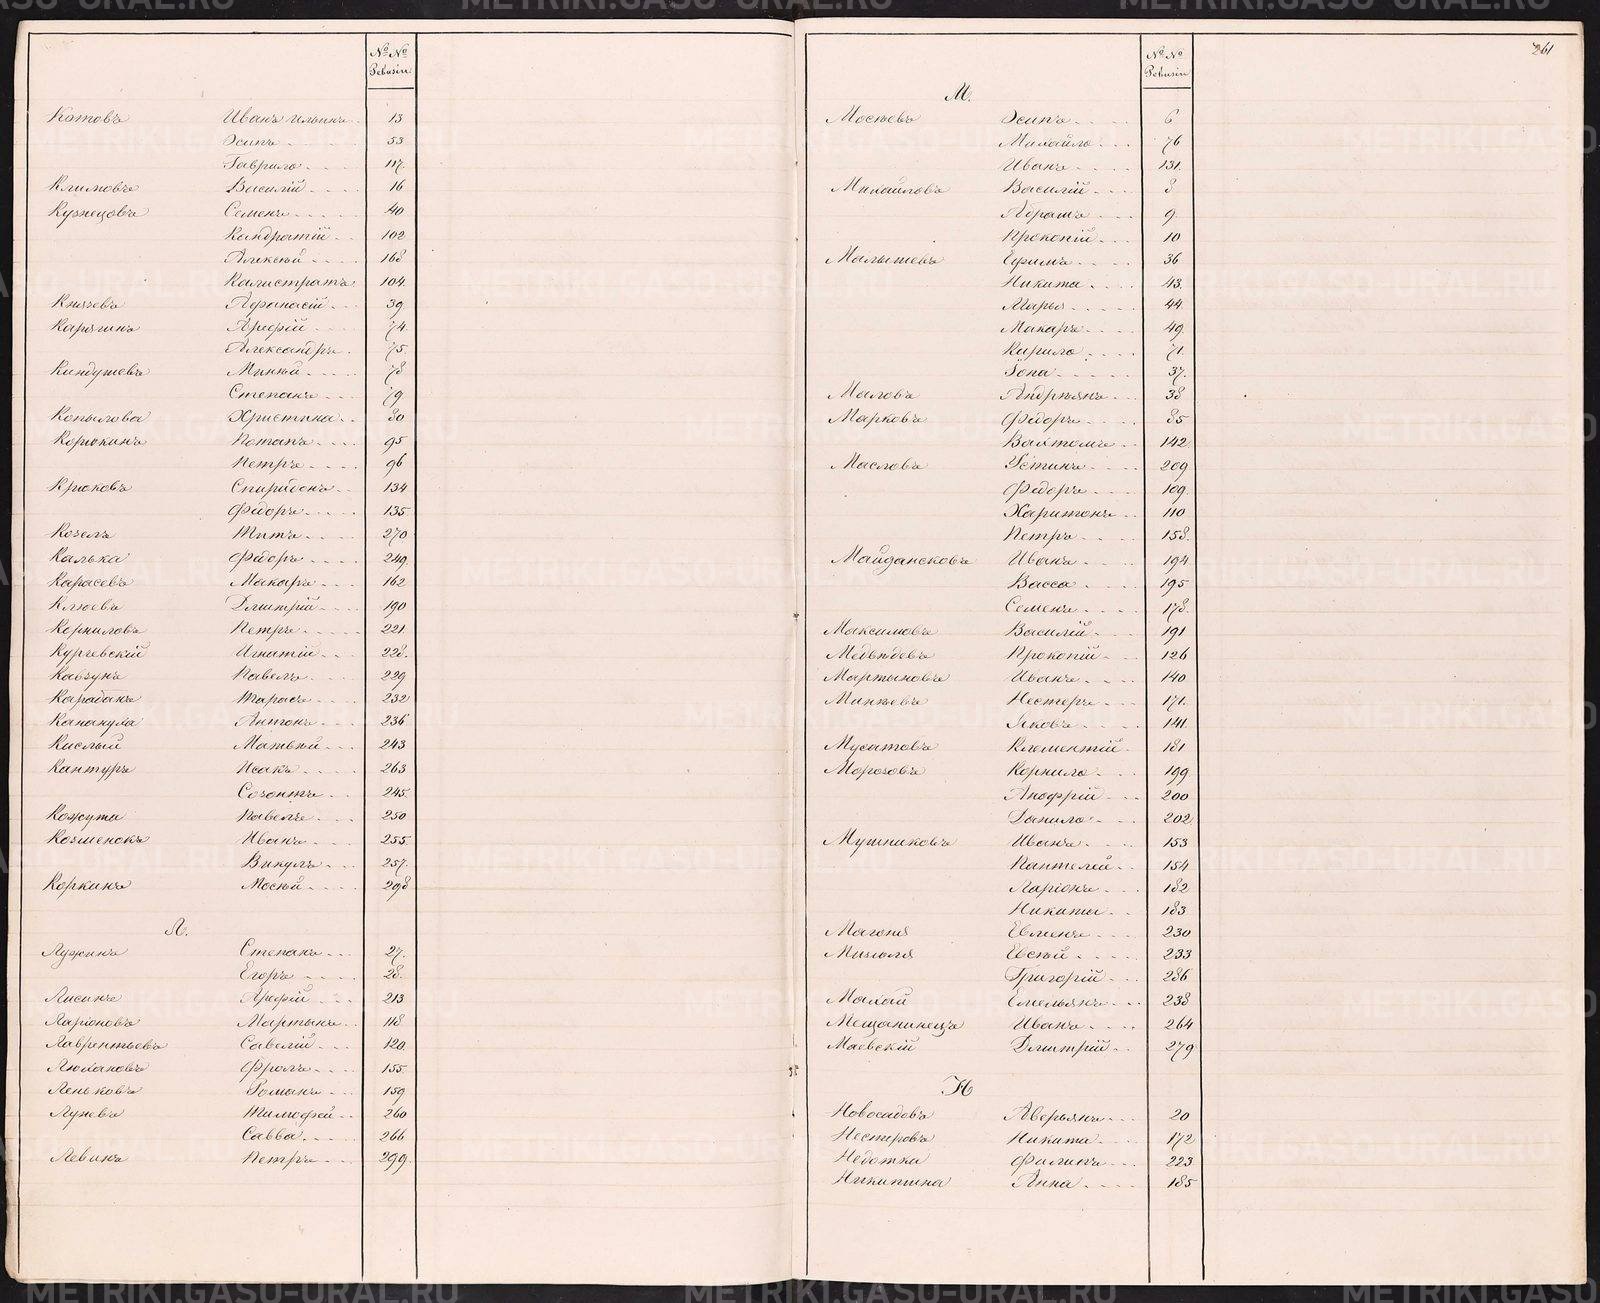 № №
Ревизiи
Котовъ Иванъ Ильинъ 13
Эсипъ 53
Гаврило 117.
Климовъ Василiй 16
Кузнецовъ Семенъ 40
Кандратiй 102
Алексѣй 168
Калистратъ 104.
Князевъ Афанасiй 39.
Карягинъ Арефiй 74.
Александръ 75.
Киндушевъ Минѣй 78
Степанъ 79
Копылова Христина 80
Корюкинъ Потапъ 95
Петръ 96
Крюковъ Спиридонъ 134
Фѣдоръ 135
Козелъ Титъ 270
Калька Фѣдоръ 249.
Карасевъ Макаръ 162
Клюевъ Дмитрiй 190
Корниловъ Петръ 221.
Курчевскiй Игнатiй 228.
Кавзунъ Павелъ 229
Карабанъ Тарасъ 232
Капанула Антонъ 236
Кислый Матвѣй 243
Кантуръ Исакъ 263
Созонтъ 245.
Кожута Павелъ 250
Козменокъ Иванъ 255.
Викулъ 257.
Коркинъ Мосѣй 298
Л.
Лузинъ Степанъ 27.
Егоръ 28.
Лисинъ Арефiй 213
Ларiоновъ Мартынъ 118
Лаврентьевъ Савелiй 120.
Люхановъ Фролъ 155.
Леньковъ Романъ 159.
Луневъ Тимофей 260
Савва 266
Левинъ Петръ 299.
261
№ №
Ревизiи
М.
Мосѣевъ Эсипъ 6
Михайло 76
Иванъ 131.
Михайловъ Василiй 8
Абрамъ 9.
Прокопiй 10
Малышевъ Ефимъ 36
Никита 43.
Марья 44.
Макаръ 49.
Карило 71.
37.
Маловъ Андрѣянъ 38
Марковъ Фѣдоръ 85
142
Масловъ Устинъ 209
Фѣдоръ 109.
Харитонъ 110
Петръ 158.
Майдансковъ Иванъ 194
Васса 195
Семенъ 178.
Максимовъ Василiй 191
Медвѣдевъ Прокопiй 126
Мартыновъ Иванъ 140
Минѣевъ Нестеръ 171.
Яковъ 141.
Мусатовъ Клементiй 181
Морозовъ Корнило 199.
Анофрiй 200
Данило 202
Мушниковъ Иванъ 153
Пантелей 154
Ларiонъ 182
Никита 183
Магоня Евменъ 230
Евсѣй 233
Григорiй 286
Малай Емельянъ 238
Мещанинецъ Иванъ 264
Маевскiй Дмитрiй 279
Н
Новосадовъ Аверьянъ 20
Нестеровъ Никита 172
Недотка Филипъ 223
Никитина Анна 185